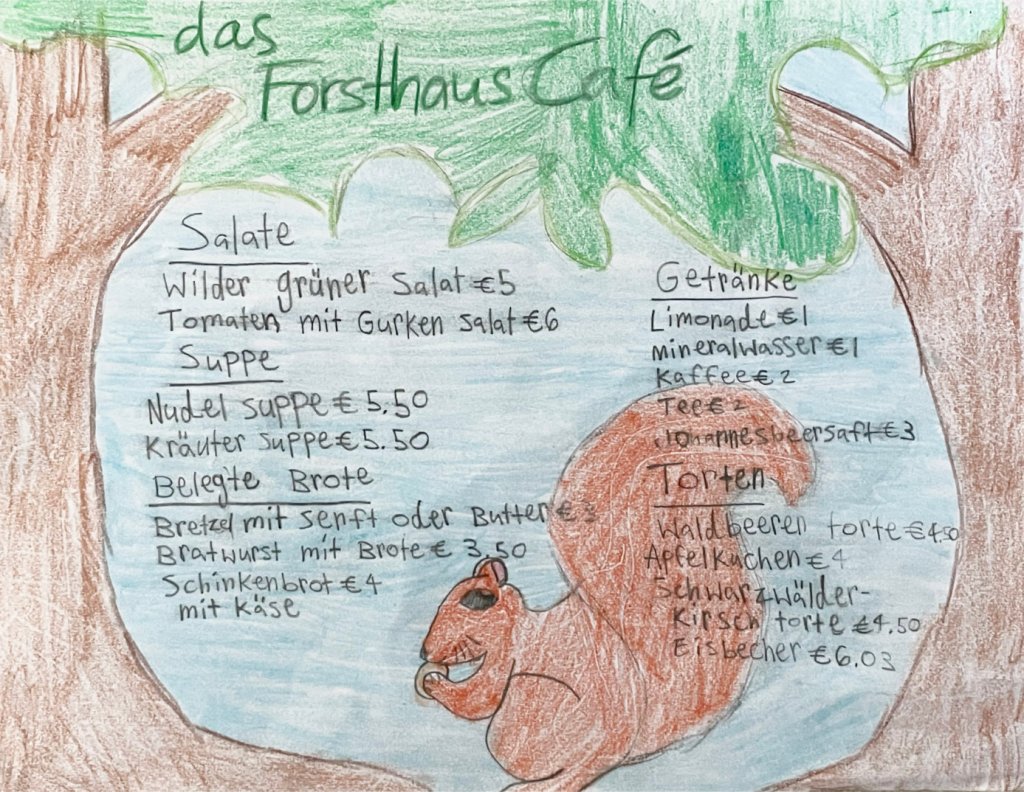 das
Forsthaus Café
Salate
Wilder grüner Salat €5
Tomaten mit Gurken salat €6
Suppe
Nudel suppe € 5.50
Kräuter suppe € 5.50
Belegte Brote
Bretzel mit senft oder Butter € 3
Bratwurst mit Brote € 3.50
Schinkenbrot € 4
mit Käse
Getränke
Limonade €1
mineralwasser €1
Kaffee € 2
Tee € 2
Johannesbeersaft €3
Torten
Waldbeeren torte €4.50
Apfelkuchen € 4
Schwarzwälder-
Kirsch torte €4.50
Eisbecher €6.03